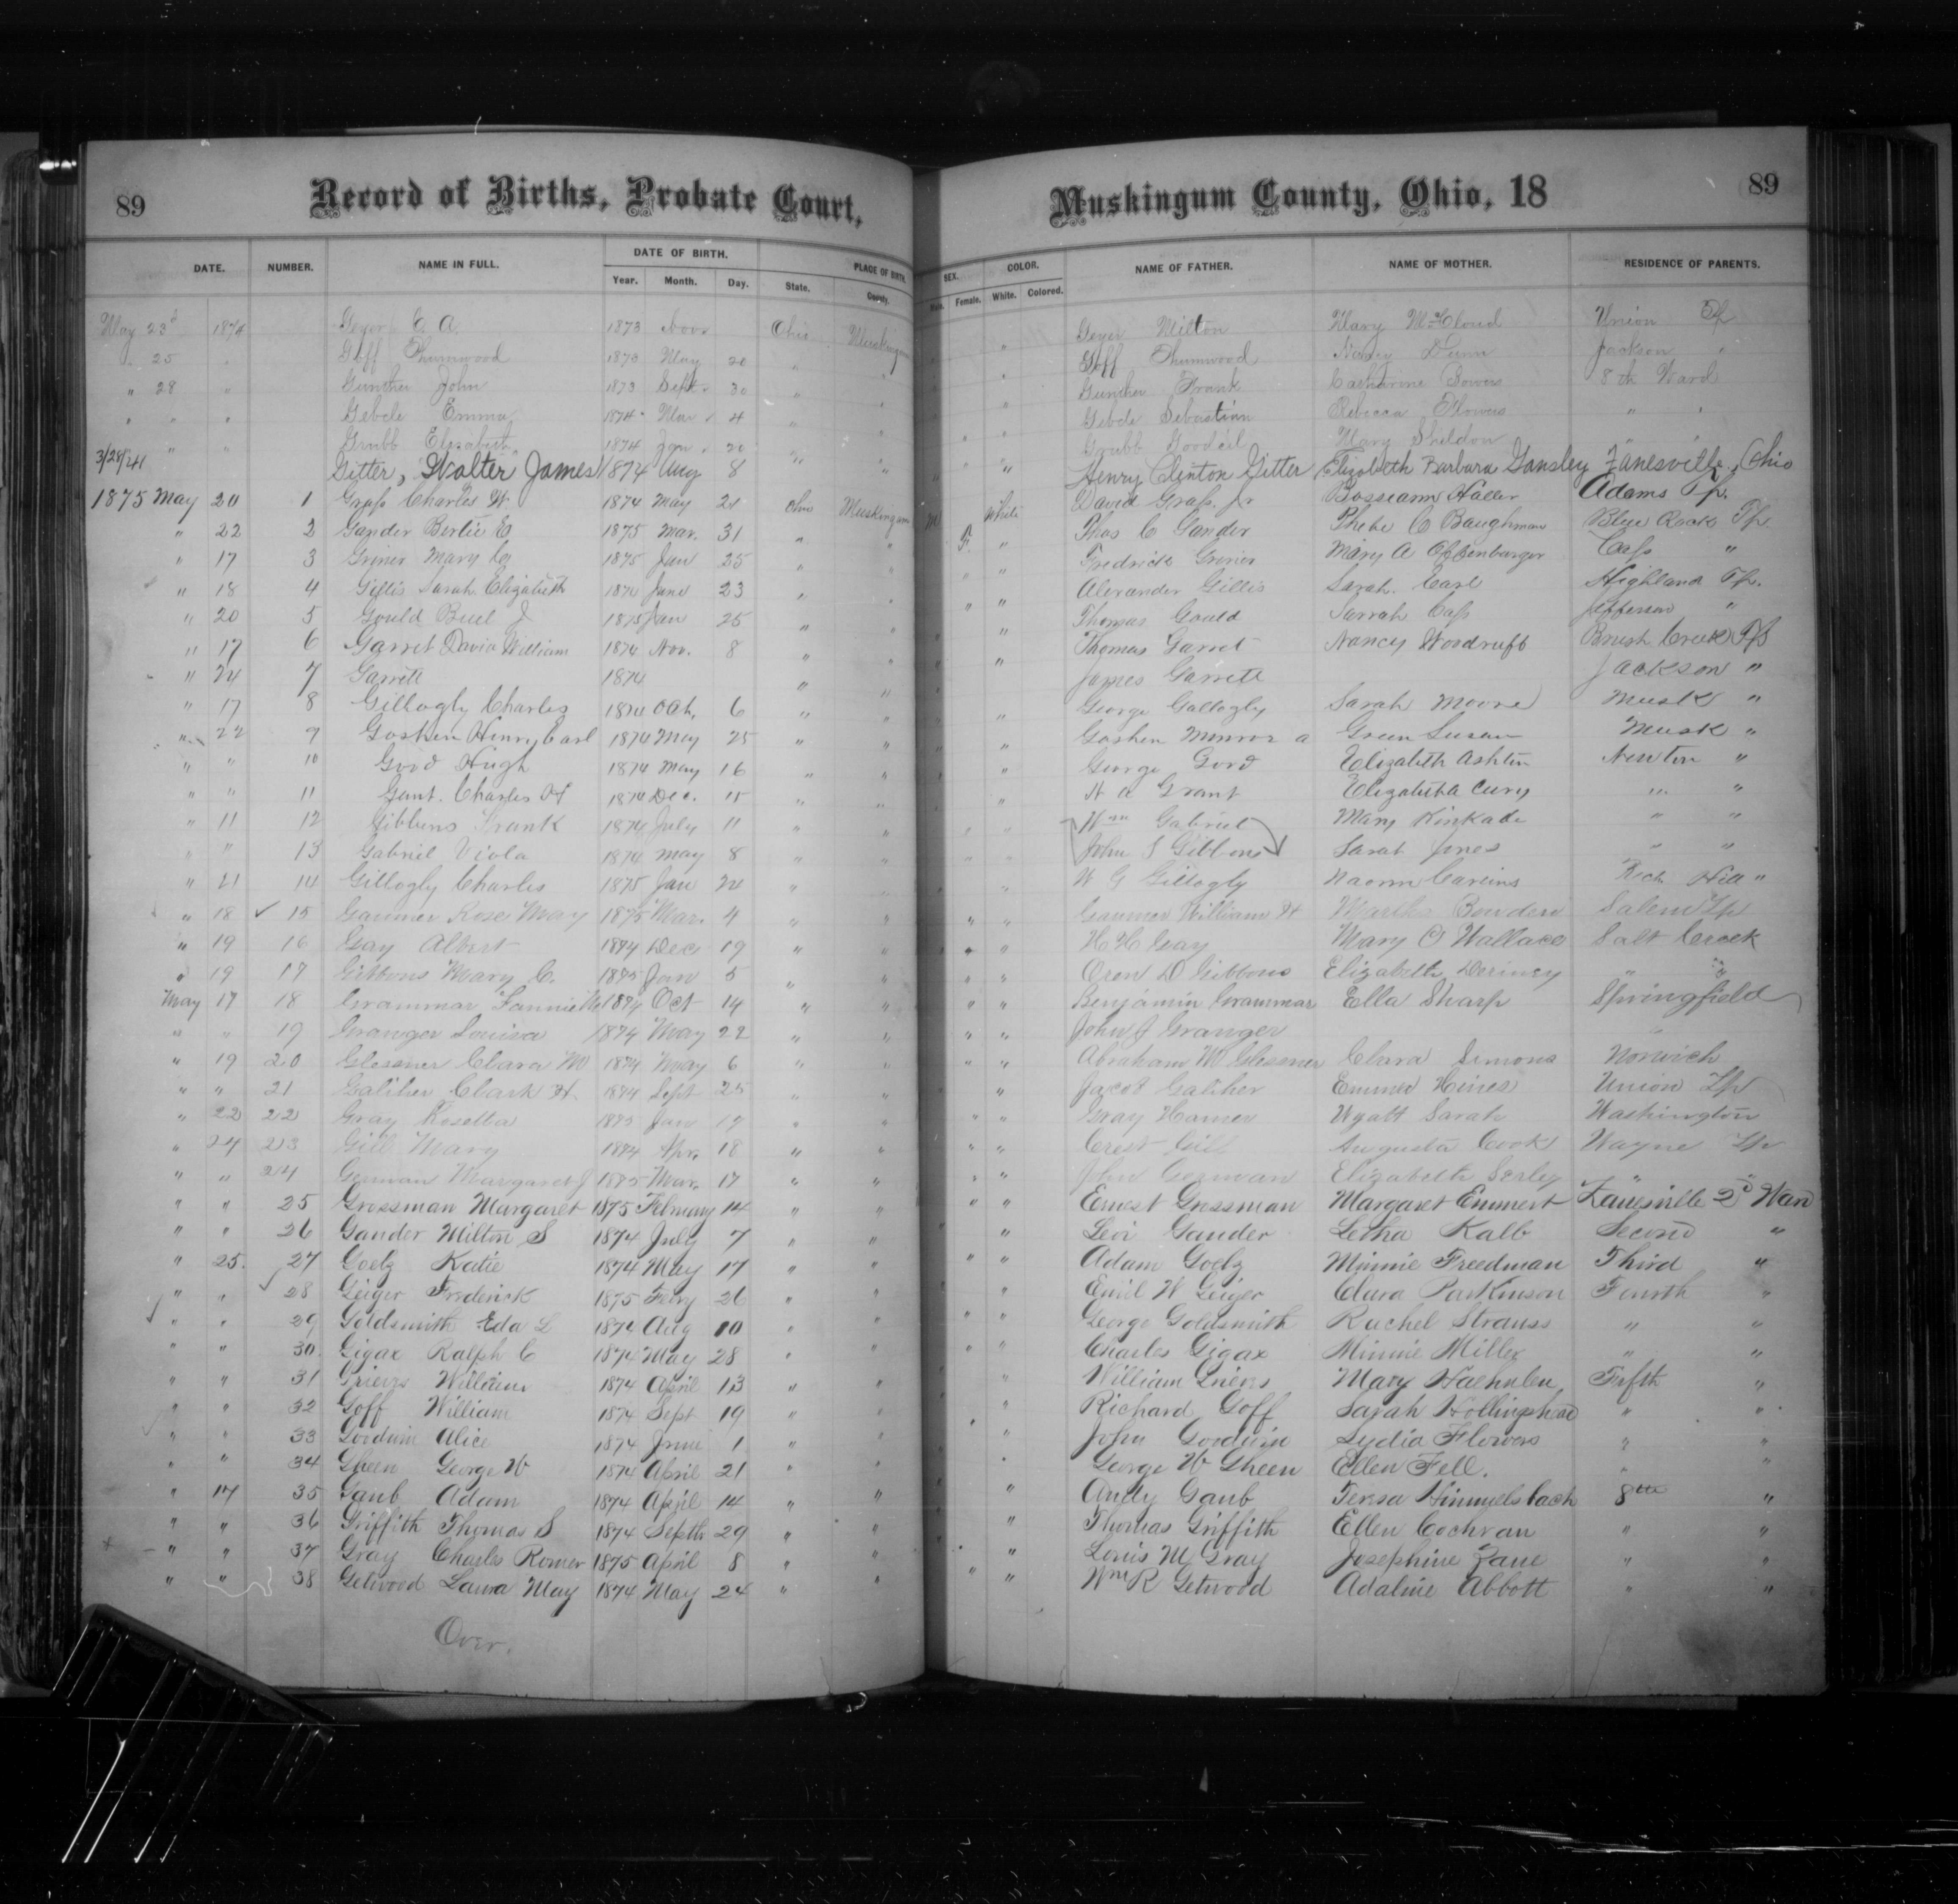 89 Record of Births, Probate Court, Muskingum County, Ohio, 18 89
DATE. NUMBER. NAME IN FULL. DATE OF BIRTH. PLACE OF BIRTH. SEX. COLOR. NAME OF FATHER. NAME OF MOTHER. RESIDENCE OF PARENTS.
Year. Month. Day. State. County. Male. Female. White. Colored.
May 23d 1874 Geyer C. A. 1873 Nov Ohio Muskingum " Geyer Milton Mary McCloud Union Tp
" 25 " Goff Thurmwood 1873 May 20 " " " Goff Thurmwood Nancy Dunn Jackson "
" 28 " Gunther John 1873 Sept. 30 " " " Gunther Frank Catharine Sowers 8th Ward
" " " Gebele Emma 1874 Mar 4 " " " " Gebele Sebastian Rebecca Flowers " "
" " Grubb Elizabeth 1874 Jan. 20 " " " " Grubb Mary Sheldon " "
3/28/41 Gitter, Walter James 1874 Aug 8 " " " " Henry Clinton Gitter Elizabeth Barbara Gansley Zanesville, Ohio
1875 May 20 1 Grass Charles W. 1874 May 21 Ohio Muskingum M White David Grass, Jr Haller Adams Tp.
" 22 2 Gander Bertie E 1875 Mar. 31 " " F. " Thos C Gander Phebe C Baughman Blue Rock Tp.
" 17 3 Griner Mary 1875 Jan 25 " " " " Fredrick Griner Mary A Offenburger Cass "
" 18 4 Gillis Sarah Elizabeth 1874 June 23 " " " " Alexander Gillis Sarah Earl Highland Tp.
" 20 5 Gould Buel J 1875 Jan 25 " " " " Thomas Gould Sarrah Cass Jefferson "
" 17 6 Garret David William 1874 Nov. 8 " " " " Thomas Garret Nancy Woodruff Brush Creek Tp
" 24 7 Garrett 1874 " " " James Garrett Jackson "
" 17 8 Gillogly Charles 1874 Oct. 6 " " " " George Gallogly Sarah Moore Musk "
" 22 9 Goshen Henry Earl 1874 May 25 " " " " Goshen Monroe a Green Susan Musk "
" " 10 Gord Hugh 1874 May 16 " " " " George Gord Elizabeth Ashton Newton "
" " 11 Gant. Charles 1874 Dec. 15 " " " H a Grant Elizabeth A Cury " "
" 11 12 Gibbens Frank 1874 July 11 " " " " Wm Gabriel Mary Kinkade " "
" " 13 Gabriel Viola 1874 May 8 " " " " John S Gibbens Sarah Jones " "
" 21 14 Gillogly Charles 1875 Jan 24 " " " W G Gillogly Naomi Carsins Rich Hill "
" 18 ✓ 15 Gaumer Rose May 1875 Mar. 4 " " " " Gaumer William H Martha Bowden Salem Tp
" 19 16 Gay Albert 1874 Dec 19 " " " " H H Gay Mary O Wallace Salt Creek
" 19 17 Gibbons Mary C. 1875 Jan 5 " " " " Oren D Gibbons Elizabeth " "
May 17 18 Grammar Fannie M 1874 Oct 14 " " " " Benjamin Grammar Ella Sharp Springfield
" " 19 Granger Louisa 1874 May 22 " " " " John J Granger "
" 19 20 Glessner Clara M 1874 May 6 " " " " Abraham M Glessner Clara Simons Norwich
" " 21 Galiher Clark H. 1874 Sept 25 " " " Jacob Galiher Emma Hines Union Tp
" 22 22 Gray Rosetta 1875 Jan 19 " " " " Gray Hamer Wyatt Sarah Washington
" 24 23 Gill Mary 1874 Apr. 18 " " " " Crest Gill Augusta Cook Wayne Tp
" " 24 German Margaret J 1875 Mar. 17 " " " " John German Elizabeth Serley " "
" " 25 Grossman Margaret 1875 February 14 " " " " Ernest Grossman Margaret Emmert Zanesville 2d Ward
" " 26 Gander Milton S 1874 July 7 " " " Levi Gander Letha Kalb Second "
" 25. 27 Goelz Katie 1874 May 17 " " " " Adam Goelz Minnie Freedman Third "
" " ✓ 28 Geiger Frederick 1875 Feby 26 " " " Emil W Geiger Clara Parkinson Fourth "
✓ " " 29 Goldsmith Eda L 1874 Aug 10 " " " " George Goldsmith Rachel Strauss " "
" " 30. Gigax Ralph C 1874 May 28 " " " " Charles Gigax Minnie Miller " "
" " 31 Grieves William 1874 April 13 " " " William Grieves Mary Haehnlen Fifth "
" " 32 Goff William 1874 Sept 19 " " " Richard Goff Sarah Hollingshead " "
✓ " " 33 Goodwin Alice 1874 June 1 " " " " John Goodwin Lydia Flowers " "
" " 34 Gheen George W 1874 April 21 " " " George W Gheen Ellen Fell. " "
" 17 35 Gaub Adam 1874 April 14 " " " Andy Gaub Teresa Himmelsbach 8th "
" " 36 Griffith Thomas S 1874 Septbr 29 " " " Thomas Griffith Ellen Cochran " "
" " 37 Gray Charles Romer 1875 April 8 " " " Louis M Gray Josephine Zane " "
" " 38 Getwood Laura May 1874 May 24 " " " " Wm R Getwood Adaline Abbott " "
Over.